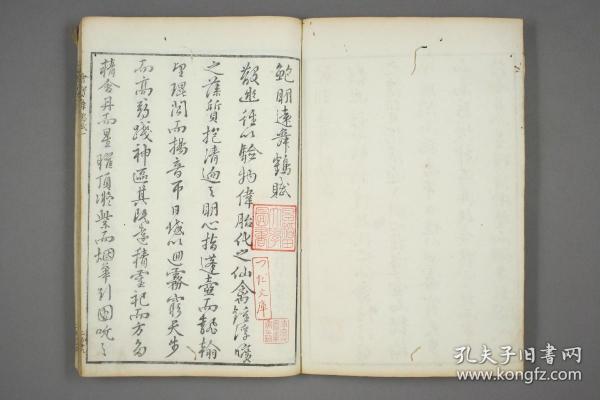 鮑明遠舞鶴賦
散幽經以驗物偉胎化之仙禽鍾浮曠
之藻質抱清迥之明心指蓬壺而翻翰
望崑閬而揚音帀日域以迴騖窮天步
而高尋踐神區其既遠積靈祀而方多
精含丹而星曜頂凝紫而烟華引圓吭之
文庫
孔夫子旧書网
www.kongfz.com